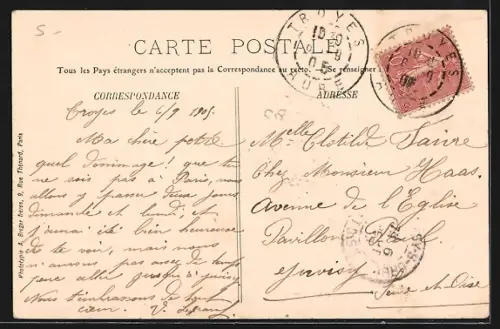 S-
CARTE POSTALE
Tous les Pays étrangers n'acceptent pas la Correspondance au recto. Se renseigner
CORRESPONDANCE
ADRESSE
Troyes 6/9 1905.
Ma chère petite
quel dommage! que tu
ne sois pas à Paris, nous
allons y passer deux jours
dimanche et lundi, et
j'aurai été bien heureuse
de te voir, mais nous
n'aurons pas assez de temps
pour aller jusqu'à
Nous t'embrassons de tout
cœur. V.
Melle Clotilde
Chez Monsieur Haas.
Avenue de l'Eglise
Pavillon
Juvisy
Seine et Oise
TROYES
AUBE
TROYES
Phototypie A. Breger Frères, 9, Rue Thénard, Paris